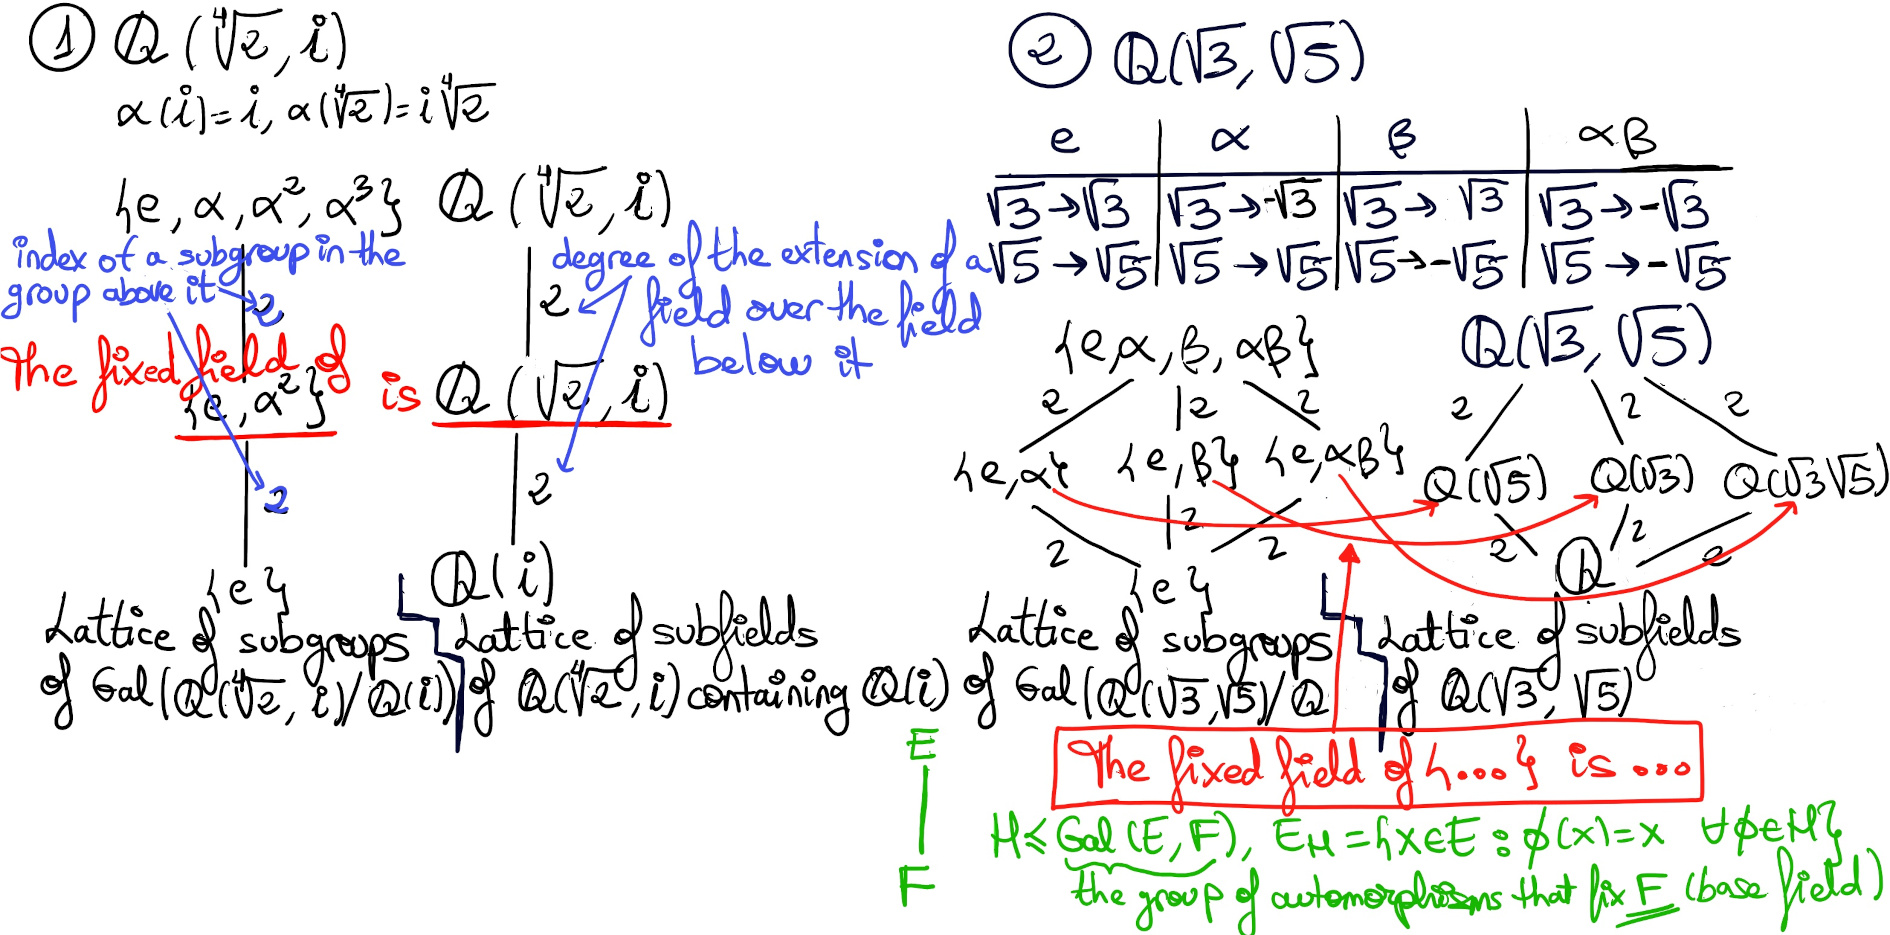 ① ℚ(∜2, i)
α(i)=i, α(∜2)=i∜2
{e, α, α², α³} ℚ(∜2, i)
index of a subgroup in the
group above it
2
degree of the extension of a
field over the field
below it
2
The fixed field of
{e, α²} is ℚ(√2, i)
2
2
{e} ℚ(i)
Lattice of subgroups
of Gal(ℚ(∜2, i)/ℚ(i))
Lattice of subfields
of ℚ(∜2, i) containing ℚ(i)
② ℚ(√3, √5)
e α β αβ
√3→√3 √3→-√3 √3→√3 √3→-√3
√5→√5 √5→√5 √5→-√5 √5→-√5
{e,α, β, αβ} ℚ(√3, √5)
2 2 2 2 2 2
{e,α} {e,β} {e,αβ} ℚ(√5) ℚ(√3) ℚ(√3√5)
2 2 2 2 2 2
{e} ℚ
Lattice of subgroups
of Gal(ℚ(√3,√5)/ℚ
Lattice of subfields
of ℚ(√3, √5)
The fixed field of {...} is ...
E
F
H≤Gal(E, F), E_H={x∈E : ϕ(x)=x ∀ϕ∈H}
the group of automorphisms that fix F (base field)